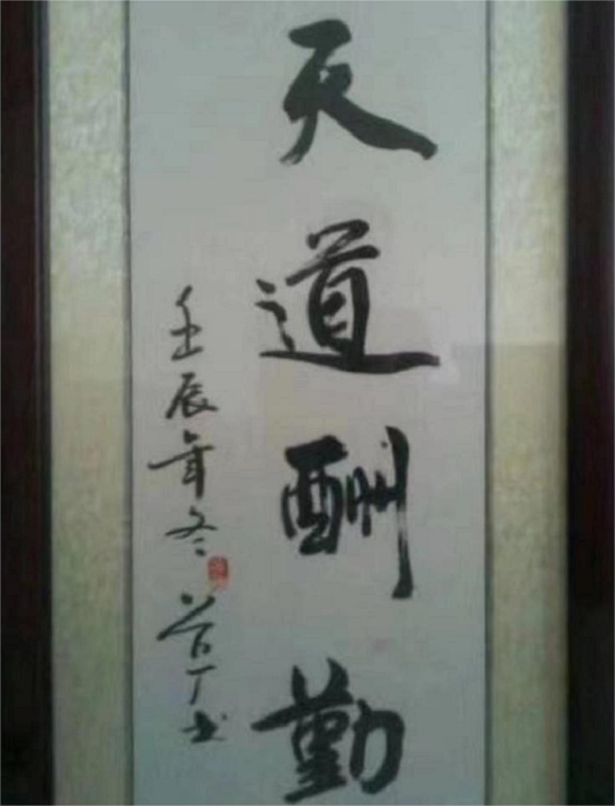 天道酬勤
壬辰年冬